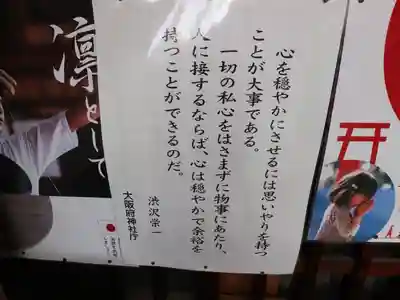 心を穏やかにさせるには思いやりを持つ
ことが大事である。
一切の私心をはさまずに物事にあたり、
人に接するならば、心は穏やかで余裕を
持つことができるのだ。
渋沢栄一
大阪府神社庁
凛として